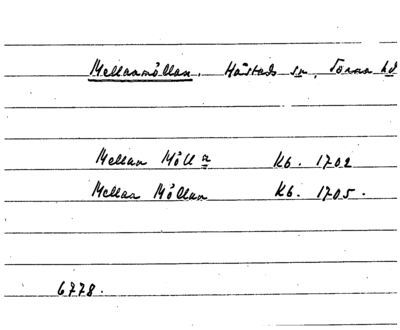 Mellanmöllan. Hårstads sn, Torna hd
Mellan Mölla Kb. 1702
Mellan Möllan Kb. 1705.
6778.